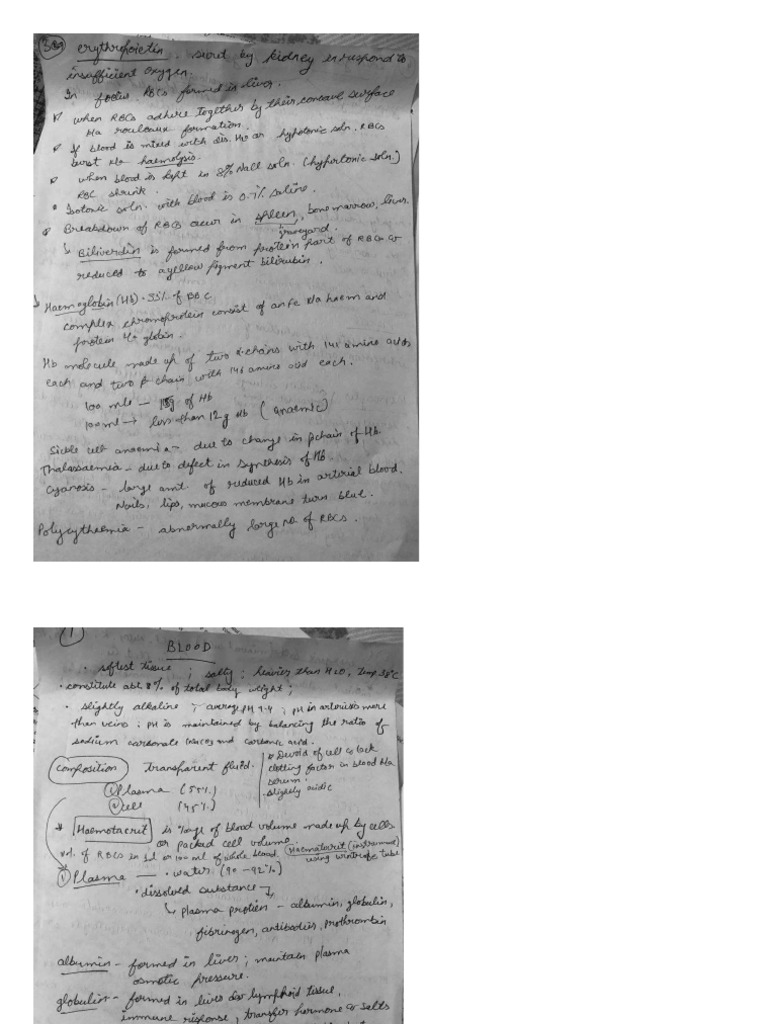 3
erythropoietin . secret by kidney in respond to
insufficient oxygen.
In foetus RBCs formed in liver.
when RBCs adhere together by their concave surface
k/a rouleaux formation.
If blood is mixed with dis. H2O or hypotonic soln. RBCs
burst k/a haemolysis.
when blood is kept in 8% NaCl soln. (hypertonic soln.)
RBC shrink.
• Isotonic soln. with blood is 0.7% saline.
Breakdown of RBCs occur in spleen, bone marrow, liver.
graveyard.
↳ Biliverdin is formed from protein part of RBCs &
reduced to a yellow pigment bilirubin.
Haemoglobin (Hb) • 33% of RBC
complex chromoprotein consist of an Fe k/a haem and
protein k/a globin.
Hb molecule made up of two α chains with 141 amino acids
each and two β chain with 146 amino acid each.
100 mle — g of Hb
100ml → less than 12g Hb (anaemic)
Sickle cell anaemia - due to change in β chain of Hb.
Thalassaemia - due to defect in synthesis of Hb.
Cyanosis - large amt. of reduced Hb in arterial blood.
Nails, lips, mucous membrane turn blue.
Polycythaemia - abnormally large no of RBCs.
1
BLOOD
• softest tissue ; salty ; heavier than H2O, Temp 38°C
• constitute abt 8% of total body weight ;
• slightly alkaline ; average pH 7.4 ; pH in arteries more
than veins ; pH is maintained by balancing the ratio of
sodium carbonate and carbonic acid.
Composition transparent fluid.
Devoid of cell & lack
clotting factor in blood k/a
serum.
• slightly acidic
① Plasma (55%)
② cell (45%)
* Haemotacrit is %age of blood volume made up by cells
or packed cell volume.
vol. of RBCs in or 100 ml of whole blood. Haematocrit (instrument)
using wintrobe tube
① Plasma — • water (90-92%)
• dissolved substance
↳ plasma protien - albumin, globulin,
fibrinogen, antibodies, prothrombin
albumin - formed in liver ; maintain plasma
osmotic pressure.
globulin - formed in liver lymphoid tissue,
immune response, transfer hormone & salts